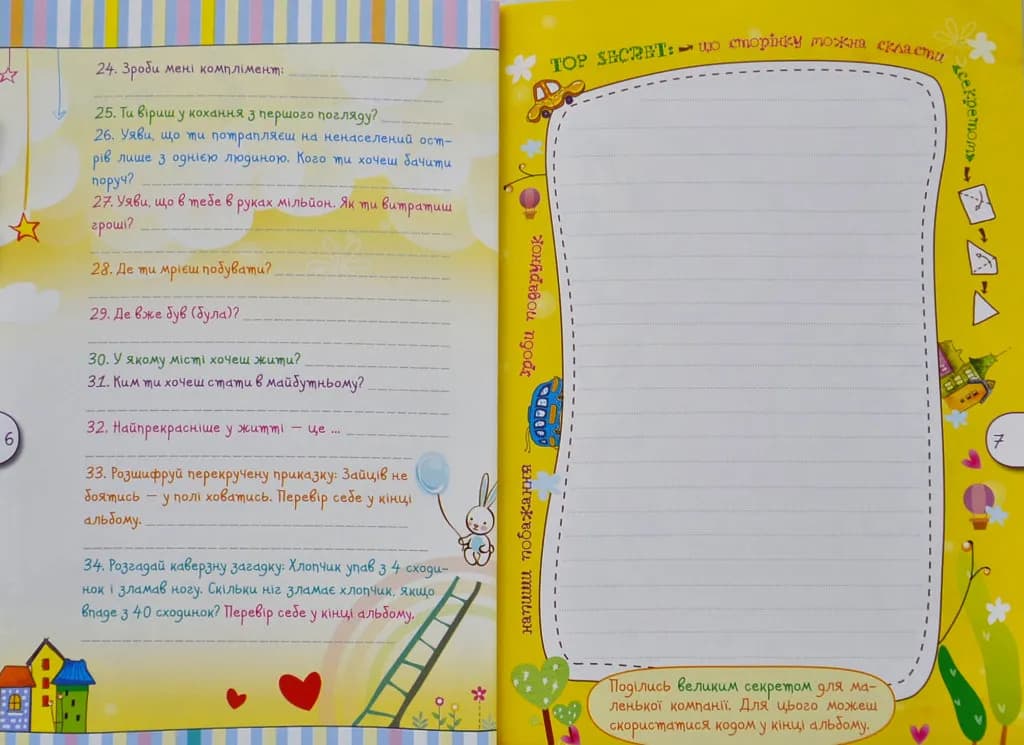 24. Зроби мені комплімент:
25. Ти віриш у кохання з першого погляду?
26. Уяви, що ти потрапляєш на ненаселений ост-
рів лише з однією людиною. Кого ти хочеш бачити
поруч?
27. Уяви, що в тебе в руках мільйон. Як ти витратиш
гроші?
28. Де ти мрієш побувати?
29. Де вже був (була)?
30. У якому місті хочеш жити?
31. Ким ти хочеш стати в майбутньому?
32. Найпрекрасніше у житті — це ...
33. Розшифруй перекручену приказку: Зайців не
боятись — у полі ховатись. Перевір себе у кінці
альбому.
34. Розгадай каверзну загадку: Хлопчик упав з 4 сходи-
нок і зламав ногу. Скільки ніг зламає хлопчик, якщо
впаде з 40 сходинок? Перевір себе у кінці альбому.
6
TOP SECRET: цю сторінку можна скласти
секретом
напиши побажання
зроби
7
Поділись великим секретом для ма-
ленької компанії. Для цього можеш
скористатися кодом у кінці альбому.